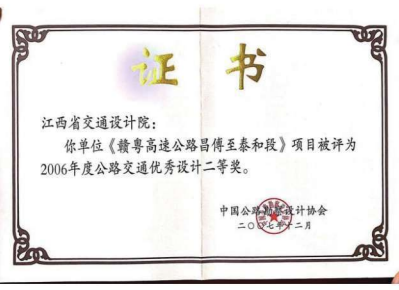 证 书
江西省交通设计院：
你单位《赣粤高速公路昌傅至泰和段》项目被评为
2006年度公路交通优秀设计二等奖。
中国公路勘察设计协会
二〇〇七年十二月